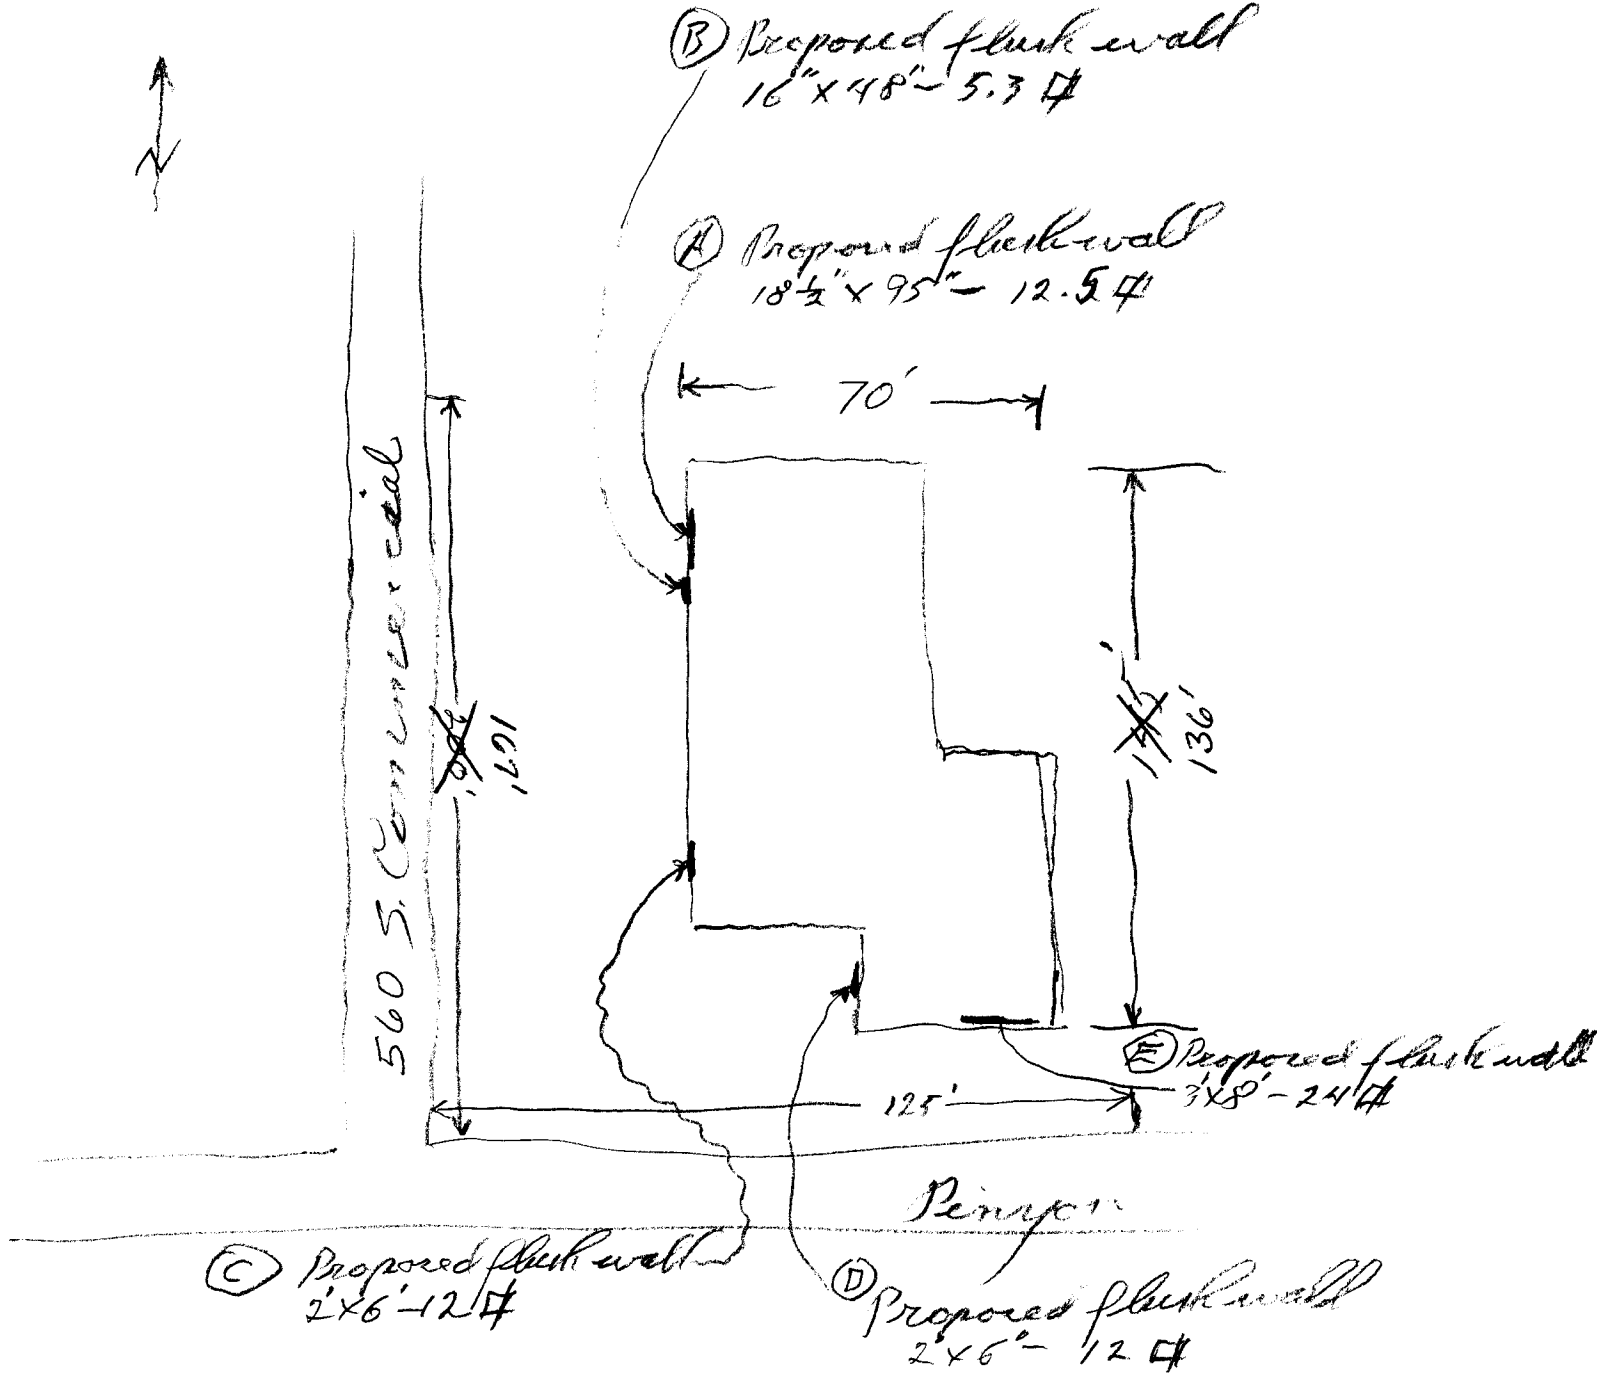 B Proposed flush wall
16" x 48" - 5.3
N
A Proposed flush wall
18 1/2" x 95" - 12.5
70'
560 S. Commercial
167'
136'
E Proposed flush wall
3' x 8' - 24
125'
Pinyon
C Proposed flush wall
2' x 6' - 12
D Proposed flush wall
2' x 6' - 12